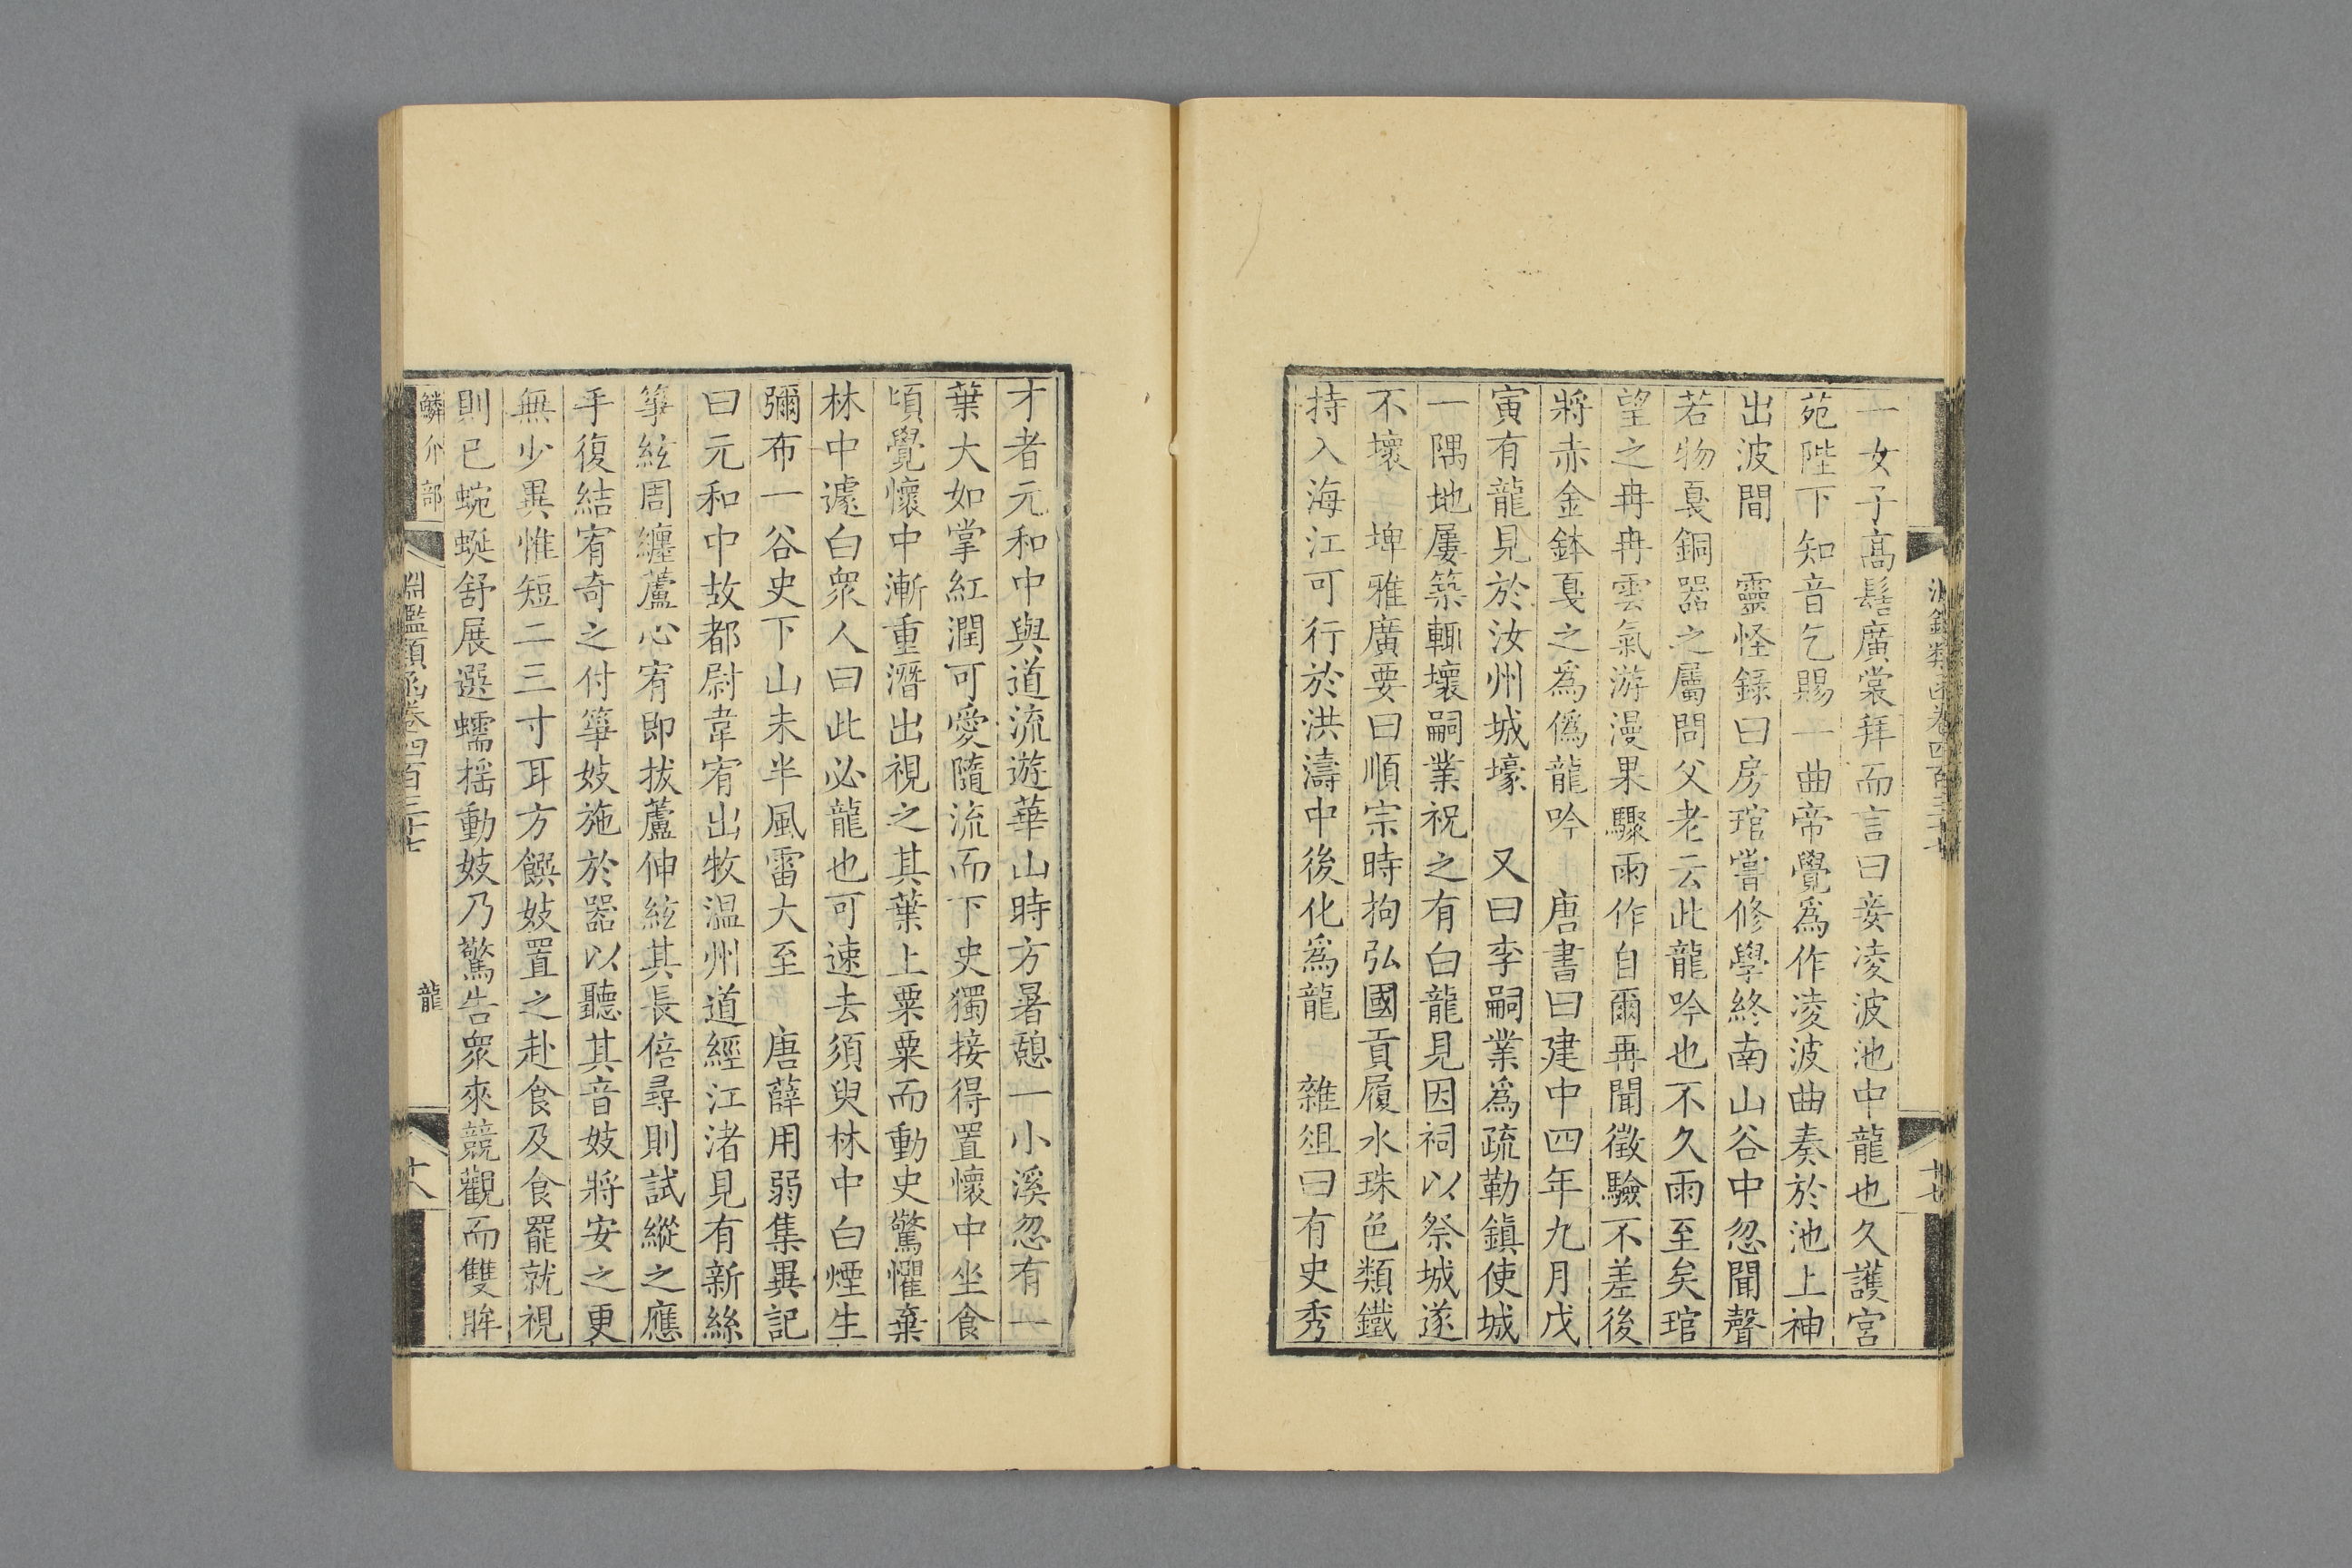 淵鑑類函卷四百三十七
十七
一女子高髻廣裳拜而言曰妾凌波池中龍也久護宮
苑陛下知音乞賜一曲帝覺爲作凌波曲奏於池上神
出波間　靈怪錄曰房琯嘗修學終南山谷中忽聞聲
若物戛銅器之屬問父老云此龍吟也不久雨至矣琯
望之冉冉雲氣游漫果驟雨作自爾再聞徵驗不差後
將赤金鉢戛之爲僞龍吟　唐書曰建中四年九月戊
寅有龍見於汝州城壕　又曰李嗣業爲疏勒鎮使城
一隅地屢築輒壞嗣業祝之有白龍見因祠以祭城遂
不壞　埤雅廣要曰順宗時拘弘國貢履水珠色類鐵
持入海江可行於洪濤中後化爲龍　雜俎曰有史秀
才者元和中與道流遊華山時方暑憩一小溪忽有一
葉大如掌紅潤可愛隨流而下史獨接得置懷中坐食
頃覺懷中漸重潛出視之其葉上粟粟而動史驚懼棄
林中遽白衆人曰此必龍也可速去須臾林中白煙生
彌布一谷史下山未半風雷大至　唐薛用弱集異記
曰元和中故都尉韋宥出牧溫州道經江渚見有新絲
箏絃周纏蘆心宥即拔蘆伸絃其長倍尋則試縱之應
手復結宥奇之付箏妓施於器以聽其音妓將安之更
無少異惟短二三寸耳方饌妓置之赴食及食罷就視
則已蜿蜒舒展選蠕搖動妓乃驚告衆來競觀而雙眸
鱗介部
淵鑑類函卷四百三十七
龍
十八